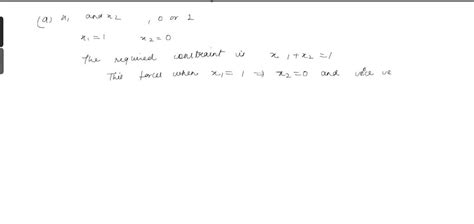 (a) x₁ and x₂ , 0 or 1
x₁ = 1 x₂ = 0
The required constraint is x₁ + x₂ = 1
This forces when x₁ = 1 ⇒ x₂ = 0 and vice ve